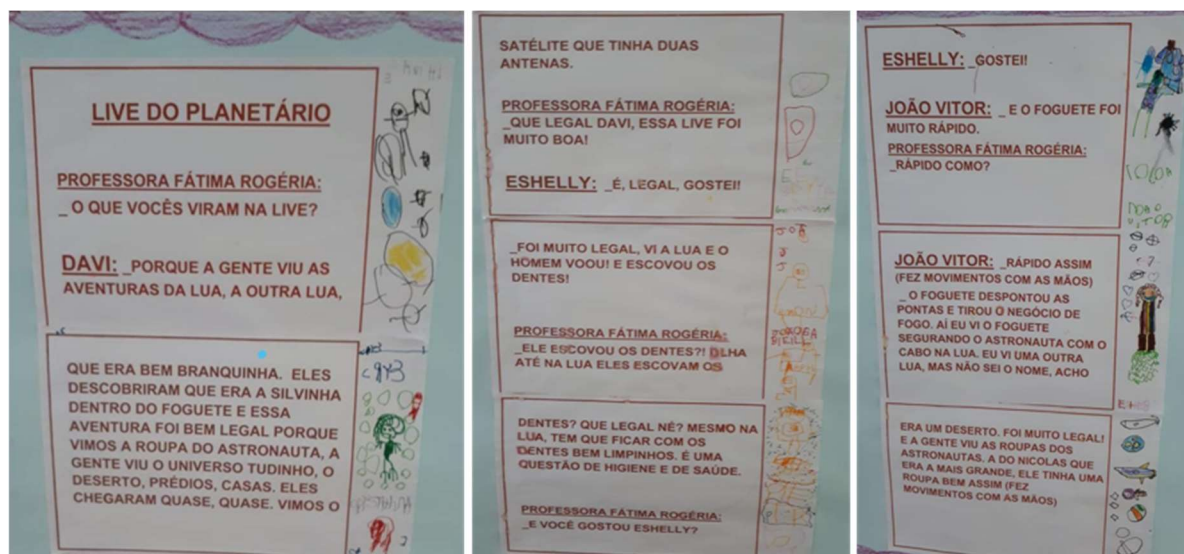 LIVE DO PLANETÁRIO
PROFESSORA FÁTIMA ROGÉRIA:
_ O QUE VOCÊS VIRAM NA LIVE?
DAVI: _PORQUE A GENTE VIU AS
AVENTURAS DA LUA, A OUTRA LUA,
QUE ERA BEM BRANQUINHA. ELES
DESCOBRIRAM QUE ERA A SILVINHA
DENTRO DO FOGUETE E ESSA
AVENTURA FOI BEM LEGAL PORQUE
VIMOS A ROUPA DO ASTRONAUTA, A
GENTE VIU O UNIVERSO TUDINHO, O
DESERTO, PRÉDIOS, CASAS. ELES
CHEGARAM QUASE, QUASE. VIMOS O
SATÉLITE QUE TINHA DUAS
ANTENAS.
PROFESSORA FÁTIMA ROGÉRIA:
_QUE LEGAL DAVI, ESSA LIVE FOI
MUITO BOA!
ESHELLY: _É, LEGAL, GOSTEI!
_FOI MUITO LEGAL, VI A LUA E O
HOMEM VOOU! E ESCOVOU OS
DENTES!
PROFESSORA FÁTIMA ROGÉRIA:
_ELE ESCOVOU OS DENTES?! OLHA
ATÉ NA LUA ELES ESCOVAM OS
DENTES? QUE LEGAL NÉ? MESMO NA
LUA, TEM QUE FICAR COM OS
DENTES BEM LIMPINHOS. É UMA
QUESTÃO DE HIGIENE E DE SAÚDE.
PROFESSORA FÁTIMA ROGÉRIA:
_E VOCÊ GOSTOU ESHELLY?
ESHELLY: _GOSTEI!
JOÃO VITOR: _ E O FOGUETE FOI
MUITO RÁPIDO.
PROFESSORA FÁTIMA ROGÉRIA:
_RÁPIDO COMO?
JOÃO VITOR: _RÁPIDO ASSIM
(FEZ MOVIMENTOS COM AS MÃOS)
_ O FOGUETE DESPONTOU AS
PONTAS E TIROU O NEGÓCIO DE
FOGO. AÍ EU VI O FOGUETE
SEGURANDO O ASTRONAUTA COM O
CABO NA LUA. EU VI UMA OUTRA
LUA, MAS NÃO SEI O NOME, ACHO
ERA UM DESERTO. FOI MUITO LEGAL!
E A GENTE VIU AS ROUPAS DOS
ASTRONAUTAS, A DO NICOLAS QUE
ERA A MAIS GRANDE, ELE TINHA UMA
ROUPA BEM ASSIM (FEZ
MOVIMENTOS COM AS MÃOS)